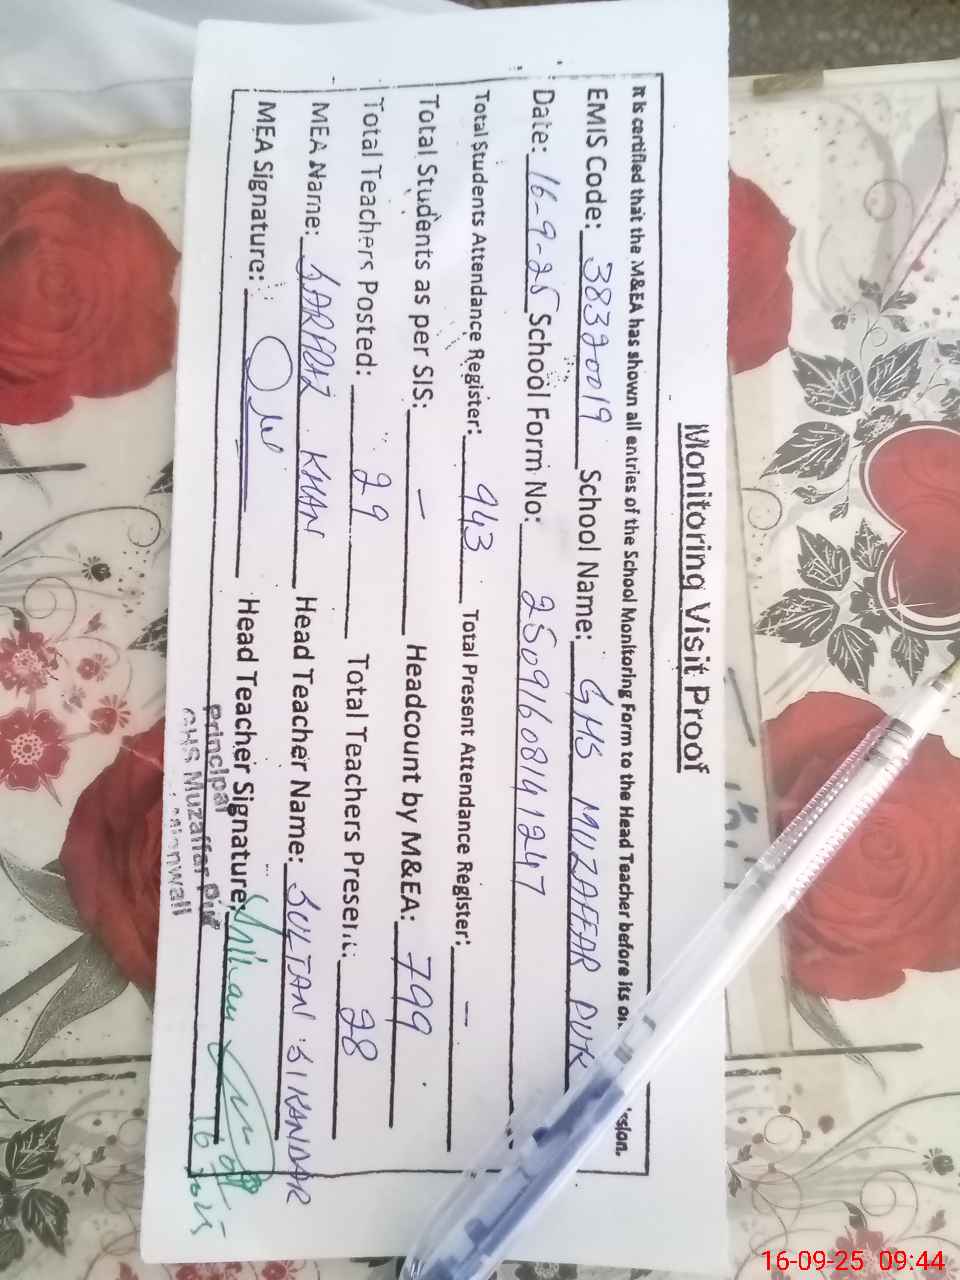 Monitoring Visit Proof
It is certified that the M&EA has shown all entries of the School Monitoring Form to the Head Teacher before its
EMIS Code: 38320019 School Name: GHS MUZAFFAR PUR
Date: 16-9-25 School Form No: 25091608141247
Total Students Attendance Register: 943 Total Present Attendance Register: —
Total Students as per SIS: — Headcount by M&EA: 799
Total Teachers Posted: 29 Total Teachers Present: 28
MEA Name: SARFRAZ KHAN Head Teacher Name: SULTAN SIKANDAR
MEA Signature: Head Teacher Signature:
Principal
GHS Muzaffar Pur
Mianwali
16-09-25 09:44